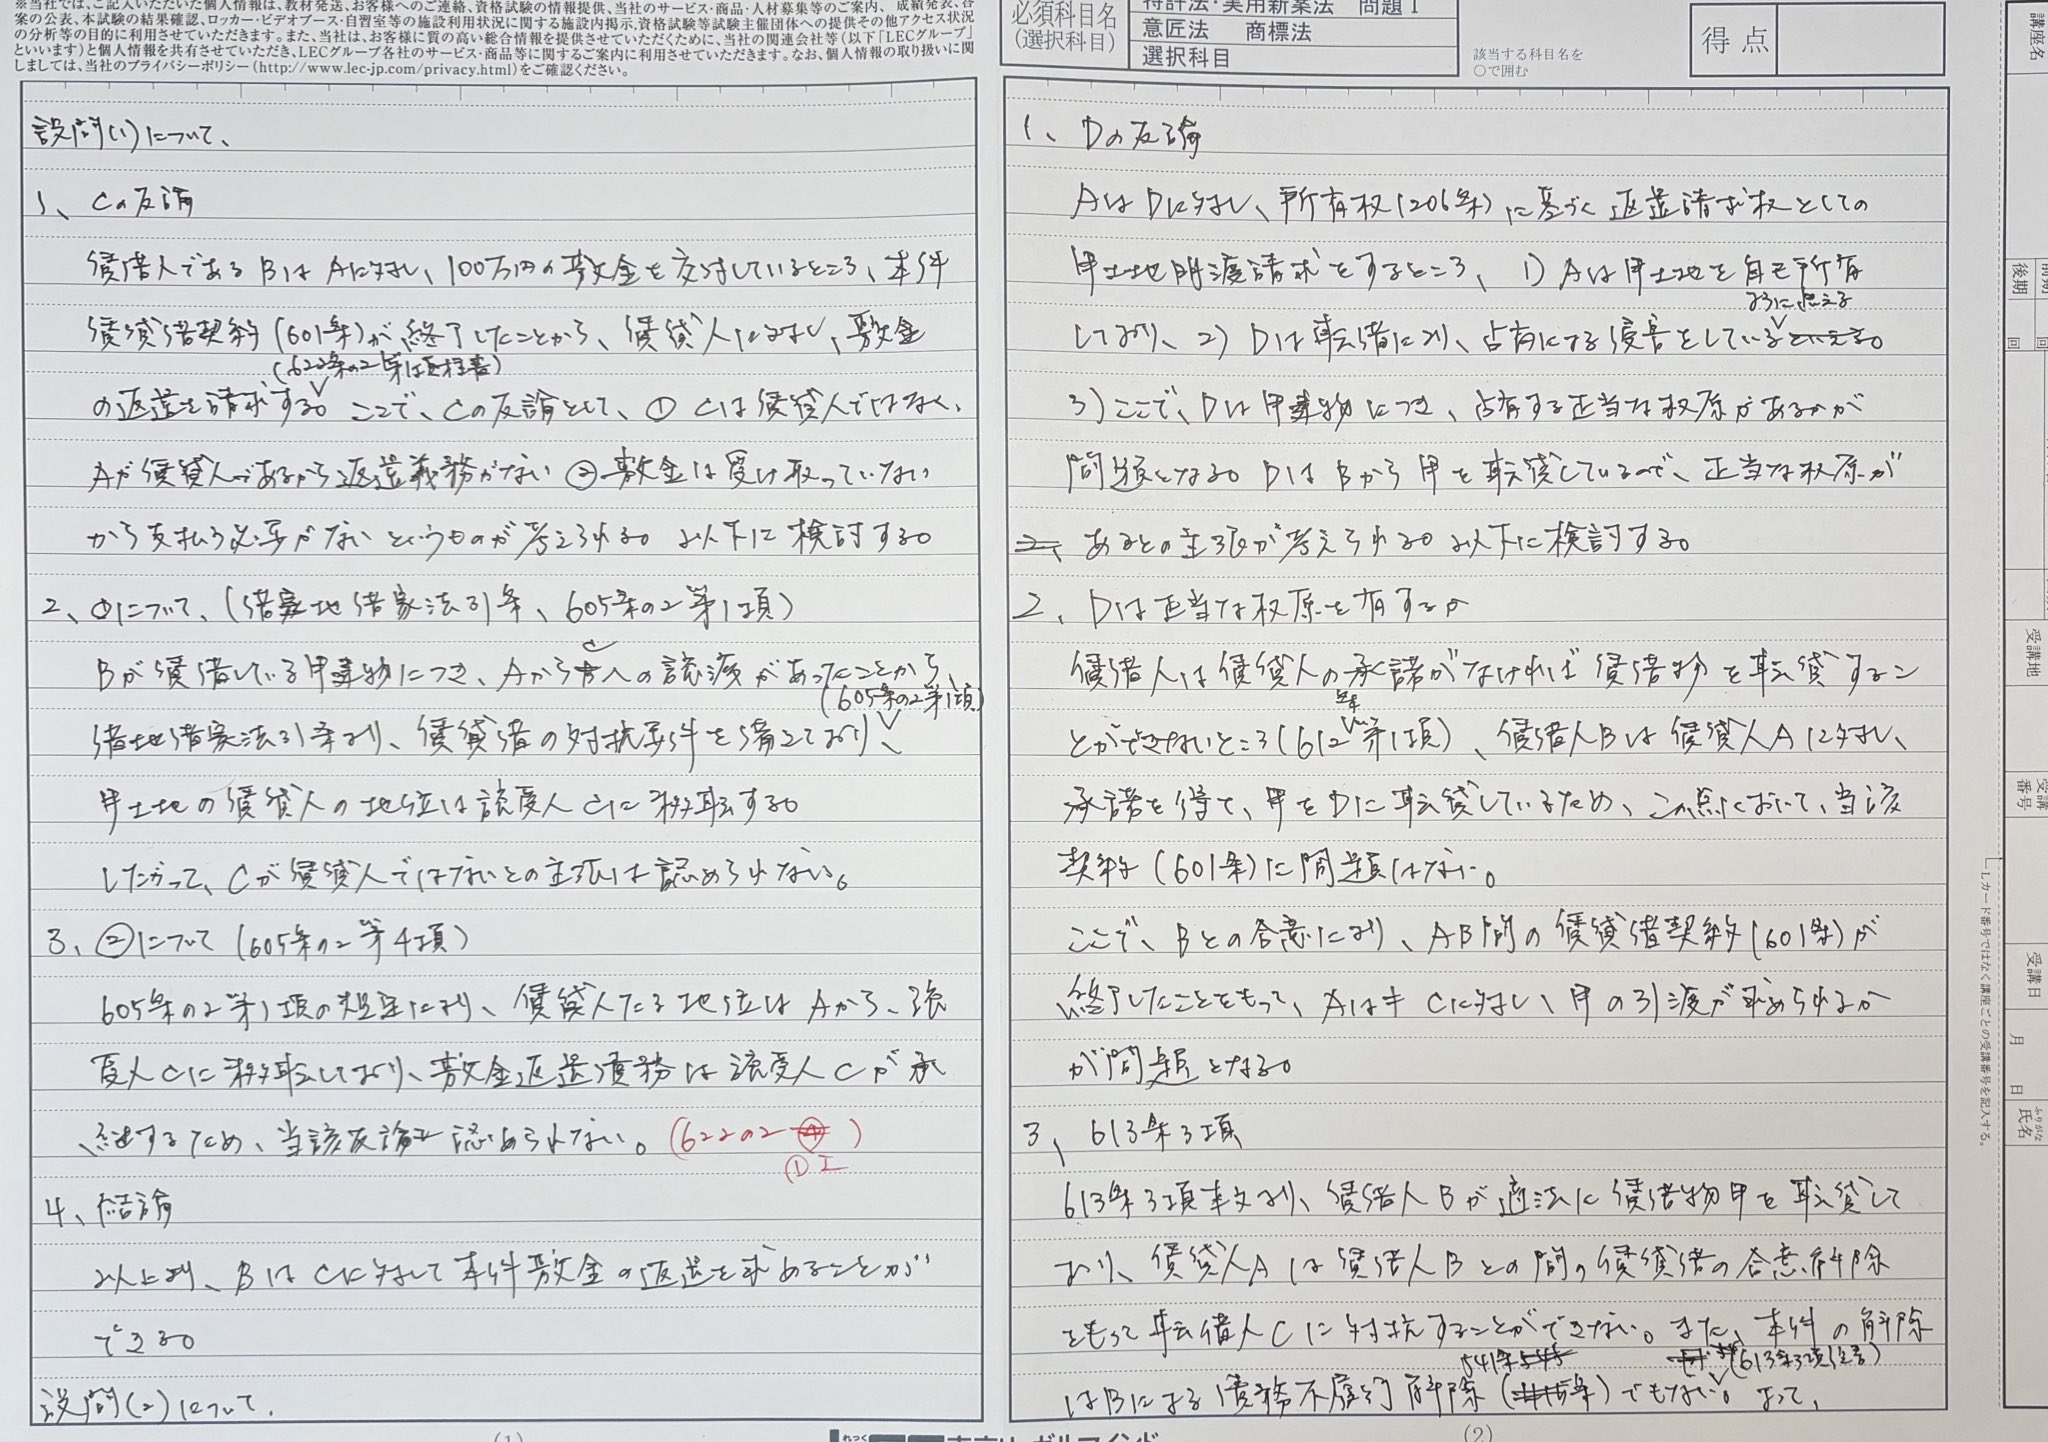 ※当社では、ご記入いただいた個人情報は、教材発送、お客様へのご連絡、資格試験の情報提供、当社のサービス・商品・人材募集等のご案内、成績発表、答
案の公表、本試験の結果確認、ロッカー・ビデオブース・自習室等の施設利用状況に関する施設内掲示、資格試験等試験主催団体への提供その他アクセス状況
の分析等の目的に利用させていただきます。また、当社は、お客様に質の高い総合情報を提供させていただくために、当社の関連会社等(以下「LECグループ」
といいます)と個人情報を共有させていただき、LECグループ各社のサービス・商品等に関するご案内に利用させていただきます。なお、個人情報の取り扱いに関
しましては、当社のプライバシーポリシー(http://www.lec-jp.com/privacy.html)をご確認ください。
必須科目名
(選択科目)
特許法・実用新案法 問題Ⅰ
意匠法 商標法
選択科目
該当する科目名を
○で囲む
得点
設問(1)について、
1、Cの反論
賃借人であるBはAに対し、100万円の敷金を交付しているところ、本件
賃貸借契約(601条)が終了したことから、賃貸人に対し、敷金
(622条の2第1項柱書)
の返還を請求する。ここで、Cの反論として、①Cは賃貸人ではなく、
Aが賃貸人であるから返還義務がない②敷金は受け取っていない
から支払う必要がないというものが考えられる。以下に検討する。
2、①について、(借地借家法31条、605条の2第1項)
Bが賃借している甲建物につき、AからCへの譲渡があったことから、
(605条の2第1項)
借地借家法31条より、賃貸借の対抗要件を備えており、
甲土地の賃貸人の地位は譲受人Cに移転する。
したがって、Cが賃貸人ではないとの主張は認められない。
3、②について(605条の2第4項)
605条の2第1項の規定により、賃貸人たる地位はAから、譲
受人Cに移転しており、敷金返還債務は譲受人Cが承
継するため、当該反論は認められない。(622の2④)
①Ⅰ
4、結論
以上より、BはCに対して本件敷金の返還を求めることが
できる。
設問(2)について、
(1)
1、Dの反論
AはDに対し、所有権(206条)に基づく返還請求権としての
甲土地明渡請求をするところ、1)Aは甲土地を自己所有
ように思える
しており、2)Dは転借により、占有による侵害をしているといえる。
3)ここで、Dは甲建物につき、占有する正当な権原があるかが
問題となる。DはBから甲を転貸しているので、正当な権原が
2、あるとの主張が考えられる。以下に検討する。
2、Dは正当な権原を有するか
賃借人は賃貸人の承諾がなければ賃借物を転貸するこ
とができないところ(612条第1項)、賃借人Bは賃貸人Aに対し、
承諾を得て、甲をDに転貸しているため、この点において、当該
契約(601条)に問題はない。
ここで、Bとの合意により、AB間の賃貸借契約(601条)が
終了したことをもって、AはCに対し、甲の引渡が求められるか
が問題となる。
3、613条3項
613条3項本文より、賃借人Bが適法に賃借物甲を転貸して
おり、賃貸人Aは賃借人Bとの間の賃貸借の合意解除
をもって転借人Cに対抗することができない。また、本件の解除
541条545
(613条3項但書)
はBによる債務不履行解除( 条)でもない。よって、
(2)
講座名
前期
後期
回
回
受講地
受講番号
受講日
月
日
ふりがな
氏名
Lカード番号ではなく講座ごとの受講番号を記入する。